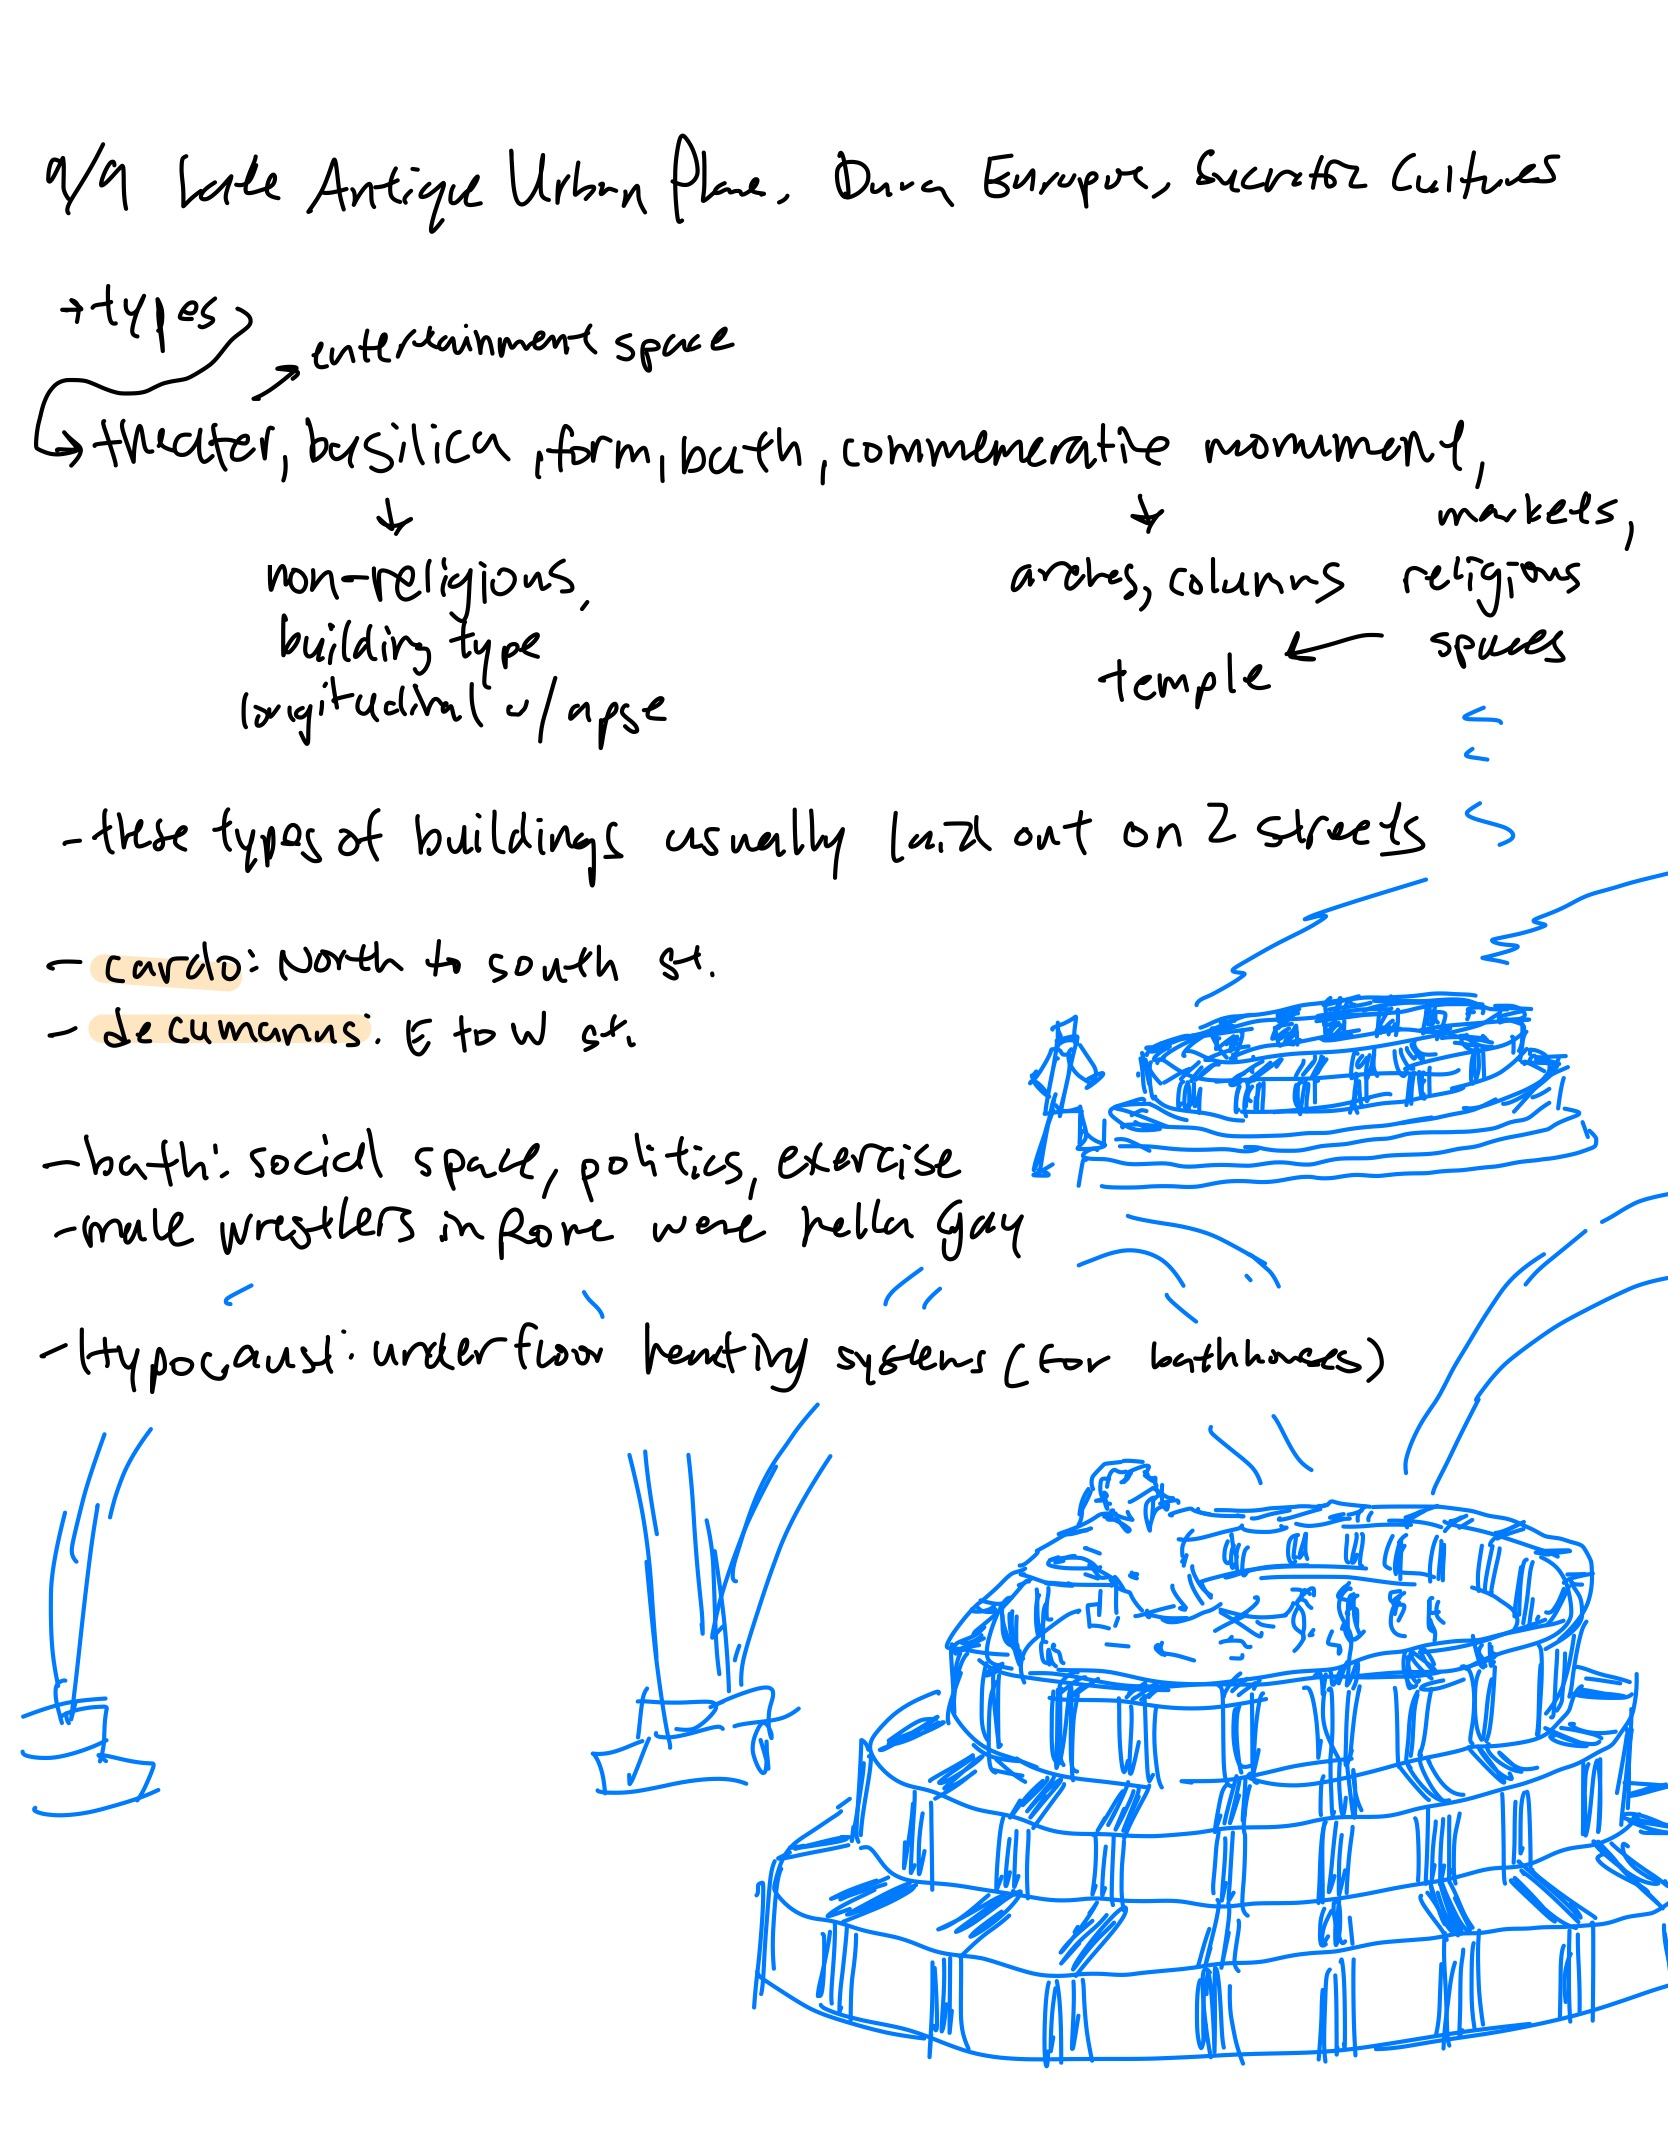 9/9 Late Antique Urban Plans, Dura Europos, Cultures
→ types
→ entertainment space
→ theater, basilica, form, bath, commemerative monument,
markets,
↓ non-religious,
building type
longitudinal w/ apse
↓ arches, columns
religious
spaces
← temple
- these types of buildings usually laid out on 2 streets
- cardo: North to south st.
- decumanus: E to W st.
- bath: social space, politics, exercise
- male wrestlers in Rome were hella gay
- Hypocaust: underfloor heating systems (for bathhouses)